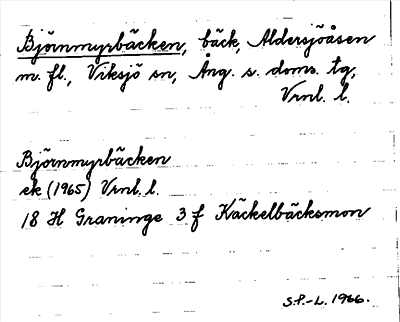 Björnmyrbäcken, bäck, Aldersjöåsen
m. fl., Viksjö sn, Ång. s. doms. tg,
Vrnl. l.
Björnmyrbäcken
ek (1965) Vrnl. l.
18 H Graninge 3 f Käckelbäcksmon
S.P.-L. 1966.